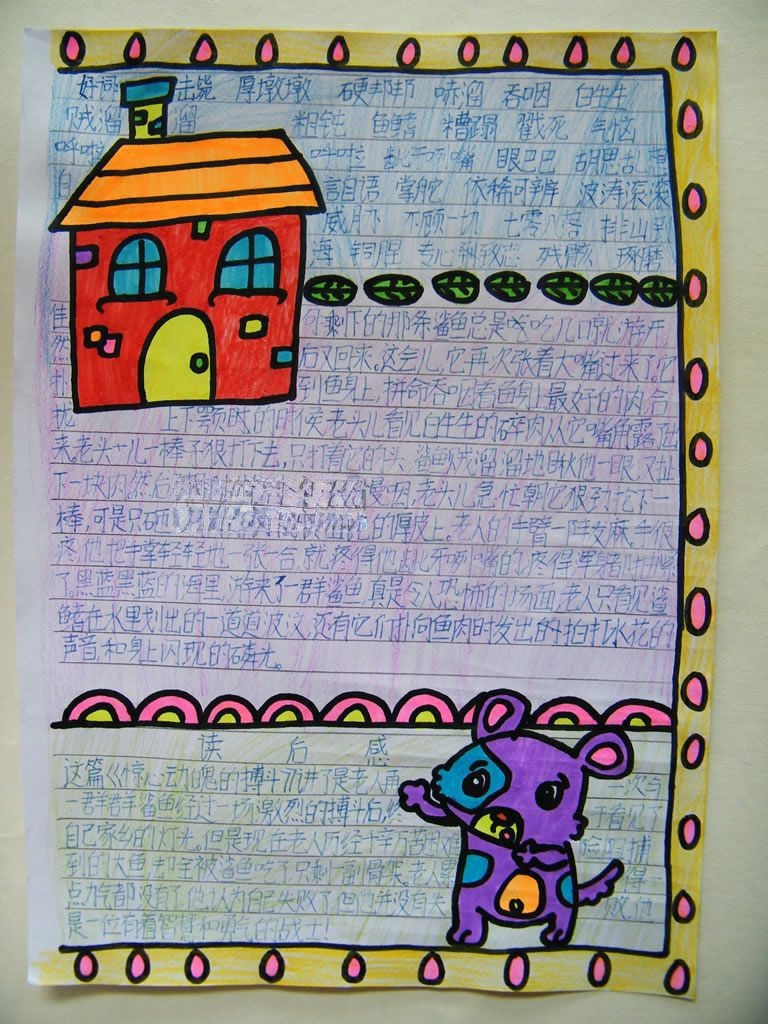 好词 击毙 厚墩墩 硬邦邦 哧溜 吞咽 白生生
贼溜溜 粗钝 鱼鳍 糟蹋 戳死 气恼
呼啦 呼啦 龇牙咧嘴 眼巴巴 胡思乱想
自 言自语 掌舵 依稀可辨 波涛滚滚
威胁 不顾一切 七零八落 排山倒
海 铜腥 专心致志 残骸 琢磨
佳 剩下的那条鲨鱼总是吃吃几口就游开
然后又回来。这会儿,它再次张着大嘴过来了。它
扑到鱼身上,拼命吞咽着鱼身上最好的肉,合
拢上下颚时的时候老头儿看见白生生的碎肉从它嘴角露出
来老头儿一棒子狠打下去,只打着它的头,鲨鱼贼溜溜地瞅他一眼,又扯
下一块肉然后 慢咽,老头儿急忙朝它狠劲抡下一
棒,可是只砸 的厚皮上。老人的手臂一阵发麻。手很
疼,他把手掌轻轻地一张一合,就疼得他龇牙咧嘴的,疼得浑身
了黑蓝黑蓝的海里,游来了一群鲨鱼真是令人恐怖的场面,老人只看见鲨
鳍在水里划出的一道道波纹,还有它们扑向鱼肉时发出的拍打水花的
声音和身上闪现的磷光。
读后感
这篇《惊心动魄的搏斗》讲了是老人再 一次与
一群群鲨鱼经过一场激烈的搏斗后,终 于看见了
自己家乡的灯光。但是现在老人历经千辛万苦 捕
到的大鱼却全被鲨鱼吃了只剩一副骨架。老人累 得一
点力气都没有了,他认为自己失败了,但他并没有失 败,他
是一位有着智慧和勇气的战士!